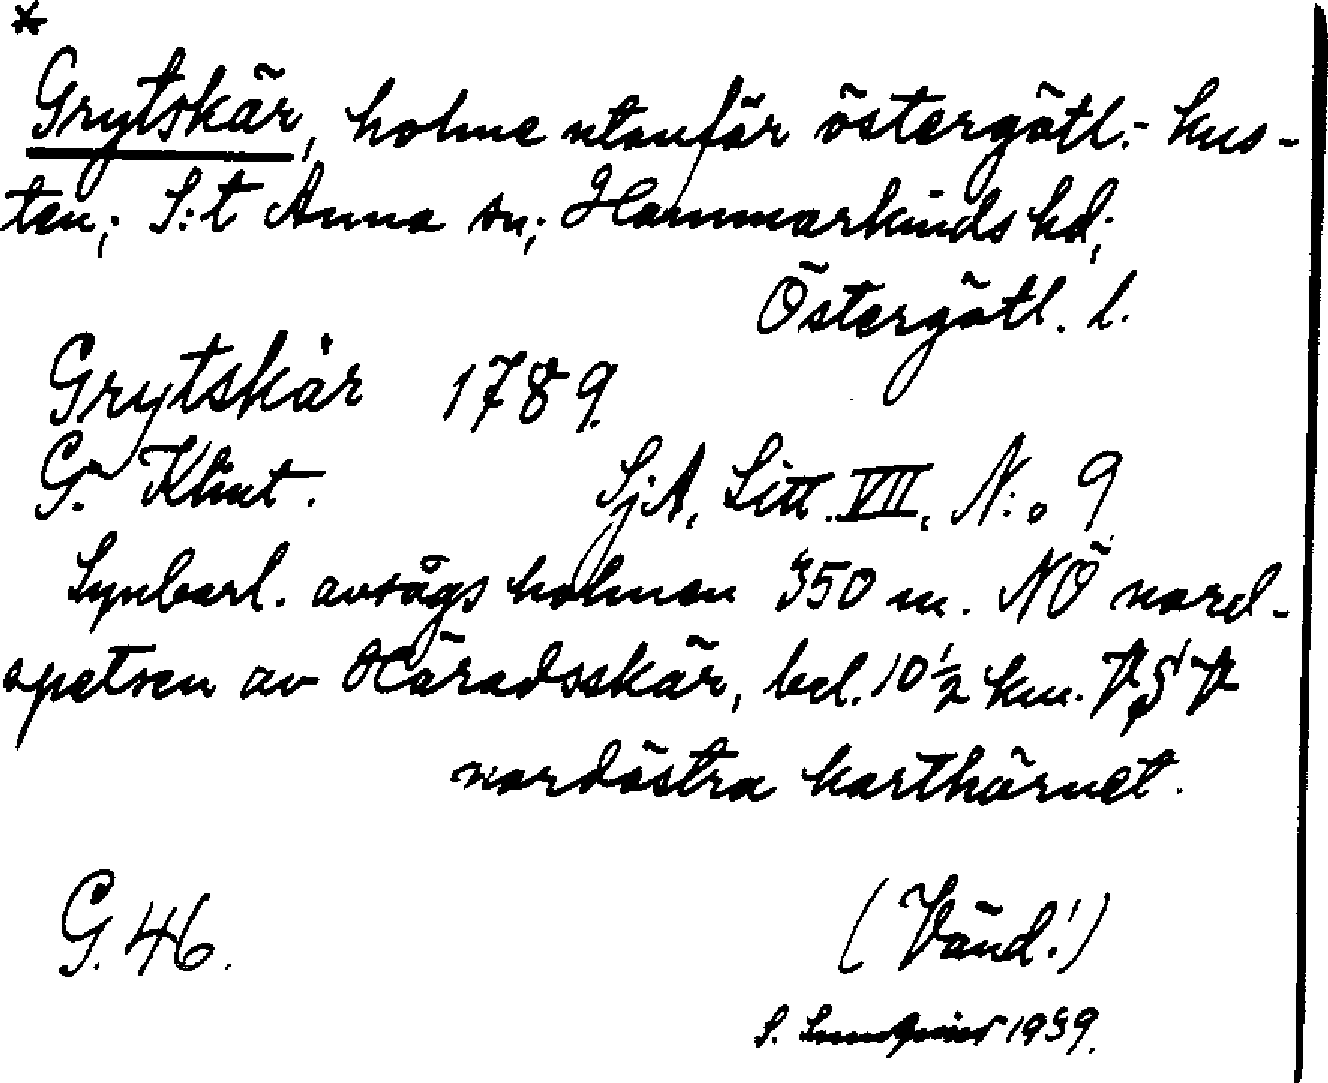 *
Grytskär, holme utanför östergötl.- kus-
ten; S:t Anna sn; Hammarkinds hd;
Östergötl. l.
Grytskär 1789.
G. Klint. SjA, Litt. VII, N:o 9
Synbarl. avsågs holmen 350 m. NÖ nord-
spetsen av Häradsskär, bel. 10 ½ km.
nordöstra karthörnet.
G. 46. (Vänd!)
S. Sundqvist 1939.